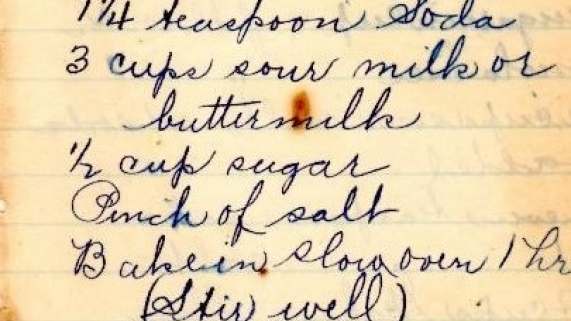 1 1/4 teaspoon Soda
3 cups sour milk or
buttermilk
1/2 cup sugar
Pinch of salt
Bake in slow oven 1 hr
(Stir well)